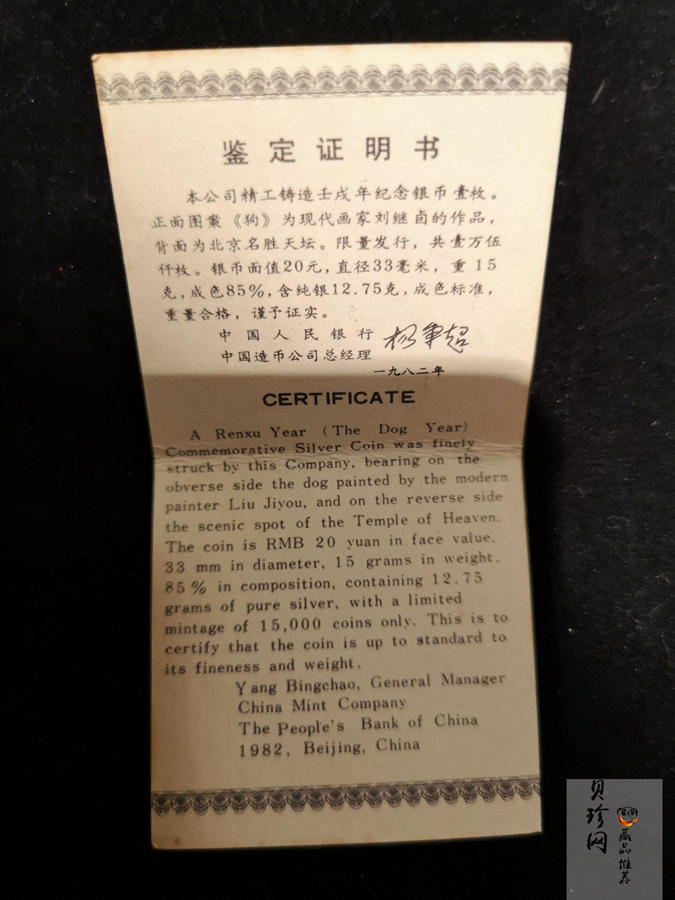 鉴定证明书
本公司精工铸造壬戌年纪念银币壹枚。
正面图案《狗》为现代画家刘继卣的作品，
背面为北京名胜天坛。限量发行，共壹万伍
仟枚。银币面值20元，直径33毫米，重15
克，成色85%，含纯银12.75克，成色标准，
重量合格，谨予证实。
中国人民银行
中国造币公司总经理
一九八二年
CERTIFICATE
A Renxu Year (The Dog Year)
Commemorative Silver Coin was finely
struck by this Company, bearing on the
obverse side the dog painted by the modern
painter Liu Jiyou, and on the reverse side
the scenic spot of the Temple of Heaven.
The coin is RMB 20 yuan in face value,
33 mm in diameter, 15 grams in weight,
85% in composition, containing 12.75
grams of pure silver, with a limited
mintage of 15,000 coins only. This is to
certify that the coin is up to standard to
its fineness and weight.
Yang Bingchao, General Manager
China Mint Company
The People's Bank of China
1982, Beijing, China
贝珍网
藏品推荐